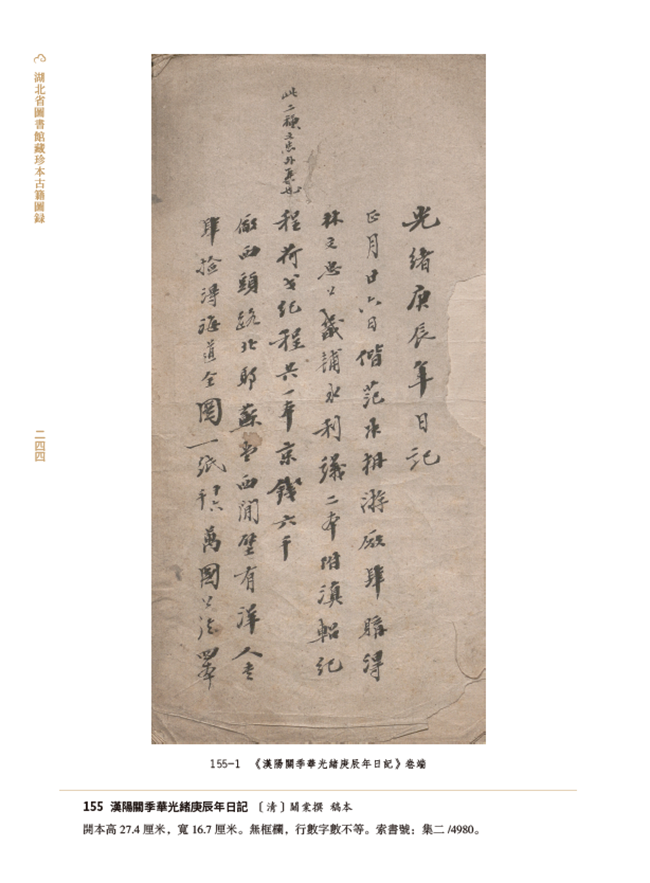 湖北省圖書館藏珍本古籍圖録
二四四
光緒庚辰年日記
正月廿六日偕范水相游厰肆購得
林文忠公畿輔水利議二本附滇軺紀
程荷戈紀程共一本京錢六千
此二種文忠外集也
厰西頭路北郎蘇堂西間壁有洋人書
肆撿得海道全圖一紙千六萬國公法四本
155-1 《漢陽關季華光緒庚辰年日記》卷端
155 漢陽關季華光緒庚辰年日記 〔清〕關棠撰 稿本
開本高 27.4 厘米，寬 16.7 厘米。無框欄，行數字數不等。索書號：集二 /4980。